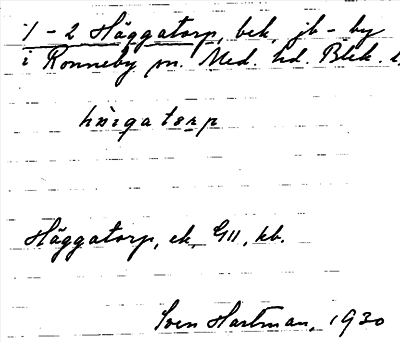 1 - 2 Häggatorp, bek, jb - by
i Ronneby sn. Med. hd. Blek. l.
Häggatorp, ek, G11, kb.
Sven Hartman, 1930